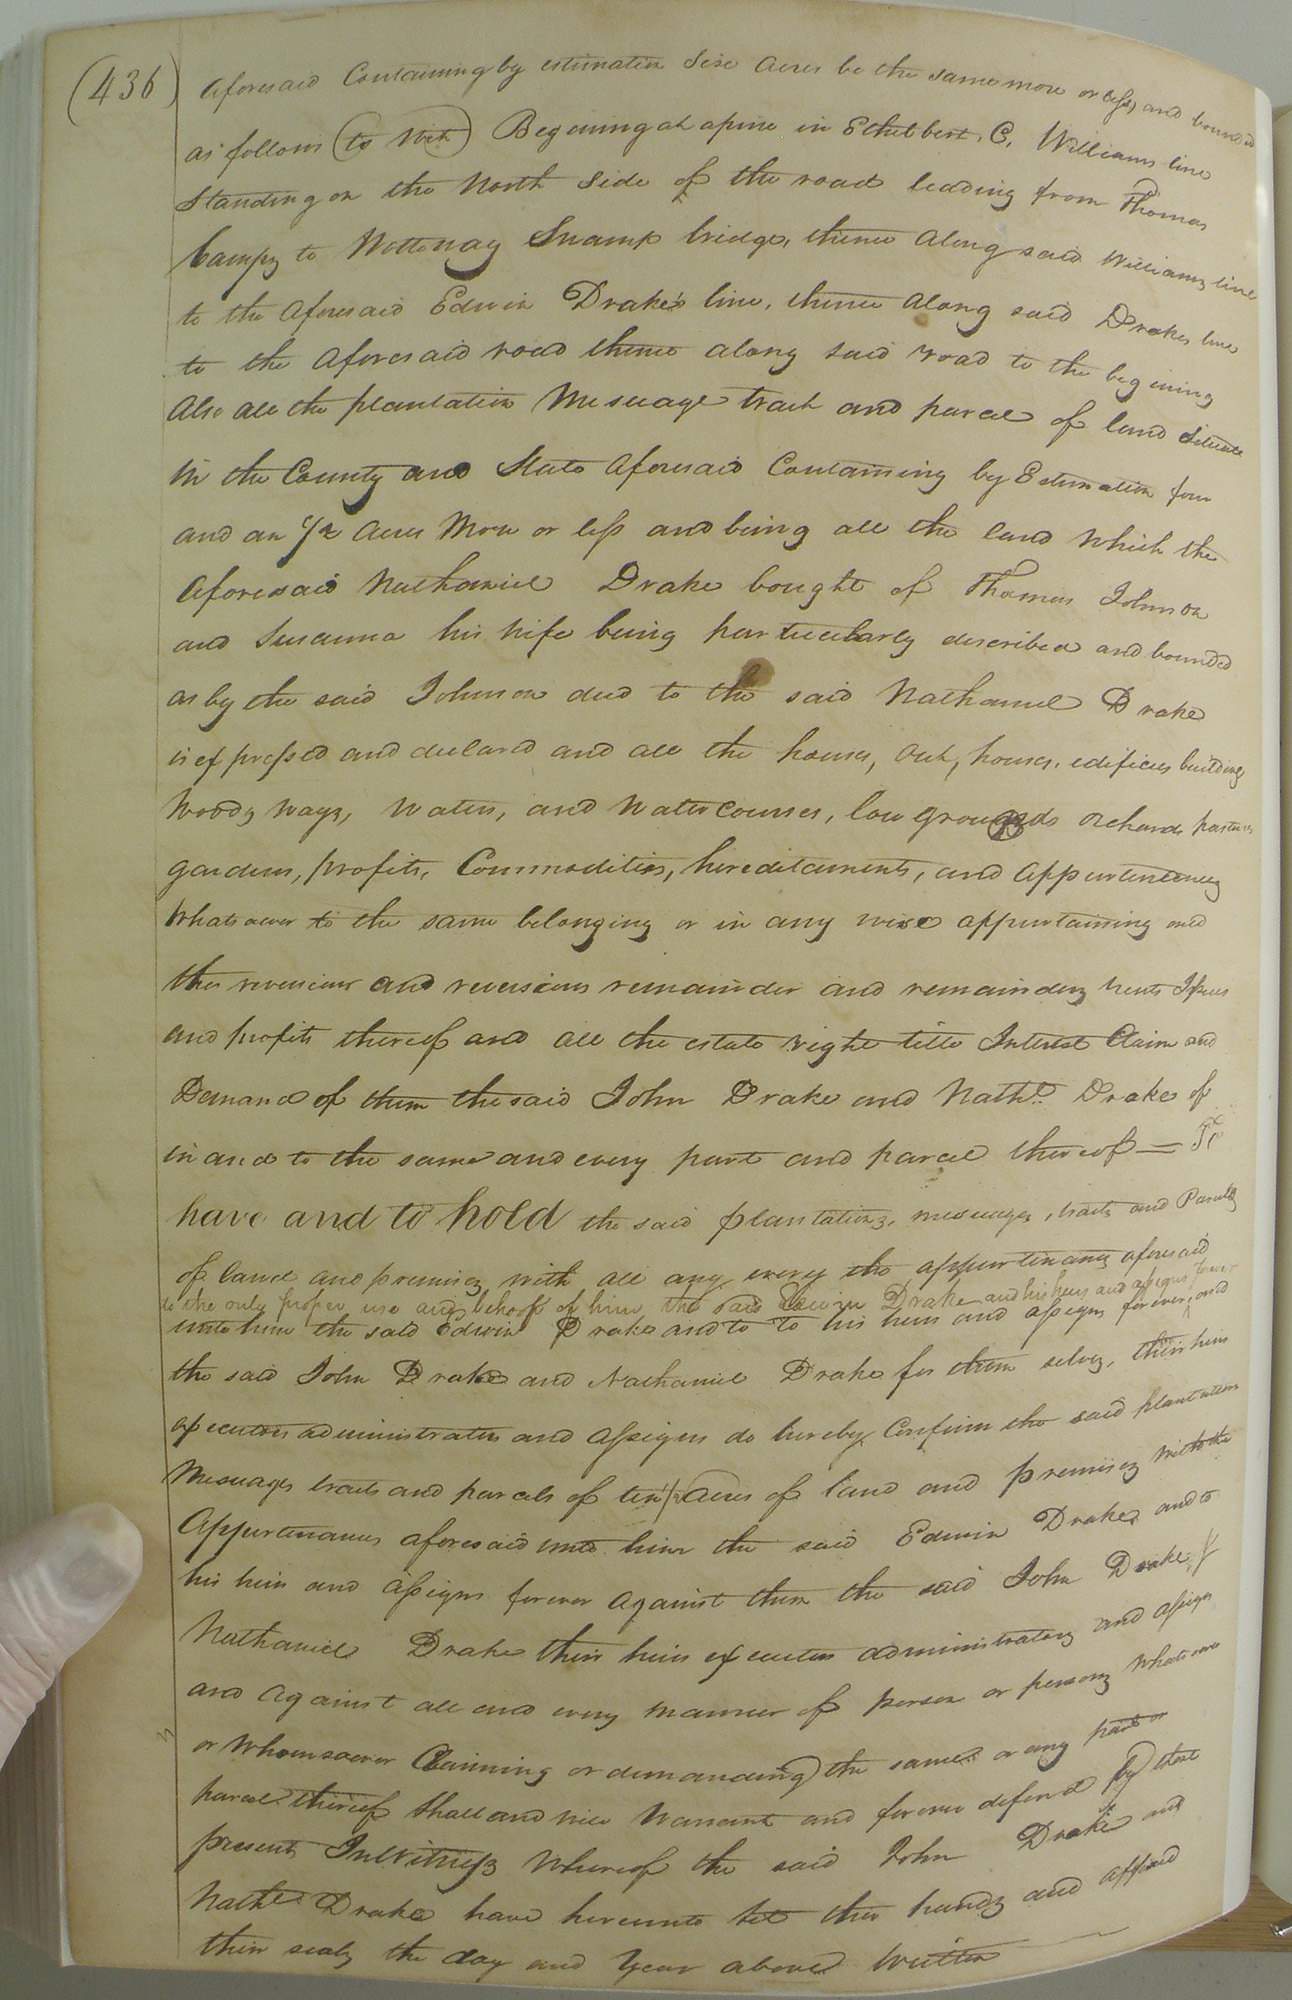 (436)
aforesaid Containing by estimation Six acres be the same more or less, and bounded
as follows (to Wit) Begening at a pine in Ethelbert, C. Williams line
Standing on the North Side of the road leading from Thomas
to Nottoway Swamp bridge, thence along said Williams line
to the aforesaid Edwin Drake's line, thence along said Drakes line
to the aforesaid road thence along said road to the begining
Also all the plantation Messuage tract and parcel of land Situate
in the County and State aforesaid Containing by Estimation four
and an 1/2 acres More or less and being all the land which the
aforesaid Nathaniel Drake bought of Thomas Johnson
and Susanna his wife being particularly described and bounded
as by the said Johnson deed to the said Nathaniel Drake
is expressed and declared and all the houses, out, houses, edifices buildings
Woods ways, waters, and Watercourses, low grounds orchards pastures
gardens, profits, Commodities, hereditaments, and appurtenences
Whatsoever to the same belonging or in any wise appurtaining and
the revercions and revercions remainder and remainders rents Issues
and profits thereof and all the estate right title Interest Claim and
Demand of them the said John Drake and Nathl. Drake of
in and to the same and every part and parcel thereof = To
have and to hold the said plantations, messuages, tracts and Parcels
of land and premises with all any every the appurtinances aforesaid
to the only proper use and behoof of him the said Edwin Drake and his heirs and assigns forever
unto him the said Edwin Drake and to To his heirs and assigns forever, and
the said John Drake and Nathaniel Drake for them selves, their heirs
executors administrators and assigns do hereby Confirm the said plantations
Messuages tracts and parcels of ten 1/2 acres of land and premises with the
Appurtenances aforesaid unto him the said Edwin Drake and to
his heirs and assigns forever against them the said John Drake &
Nathaniel Drake their heirs executors administrators and assigns
and against all and every manner of person or persons whatsoever
or Whomsoever Claiming or demanding the same or any part or
parcel thereof Shall and will Warrant and forever defend by these
presents In Witness Whereof the said John Drake and
Nathl. Drake have hereunto Set their hands and affixed
their seals the day and Year above Written